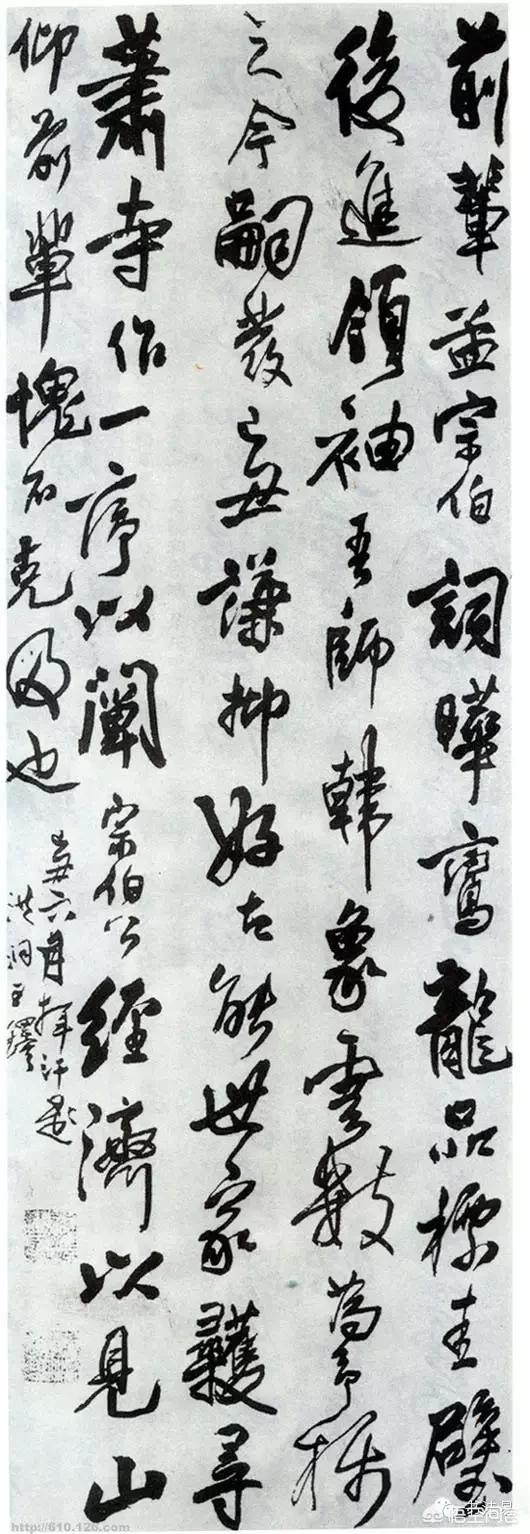 前輩孟宗伯詞曄鸞龍品標圭璧
後進領袖吾師韓象雲數為予称
之今嗣發己丑謙抑好古能世家尋
蕭寺作一序以闡宗伯公經濟以見山
仰前輩愧不克及也
己丑六月揮汗題
洪洞王鐸
http://610.126.com